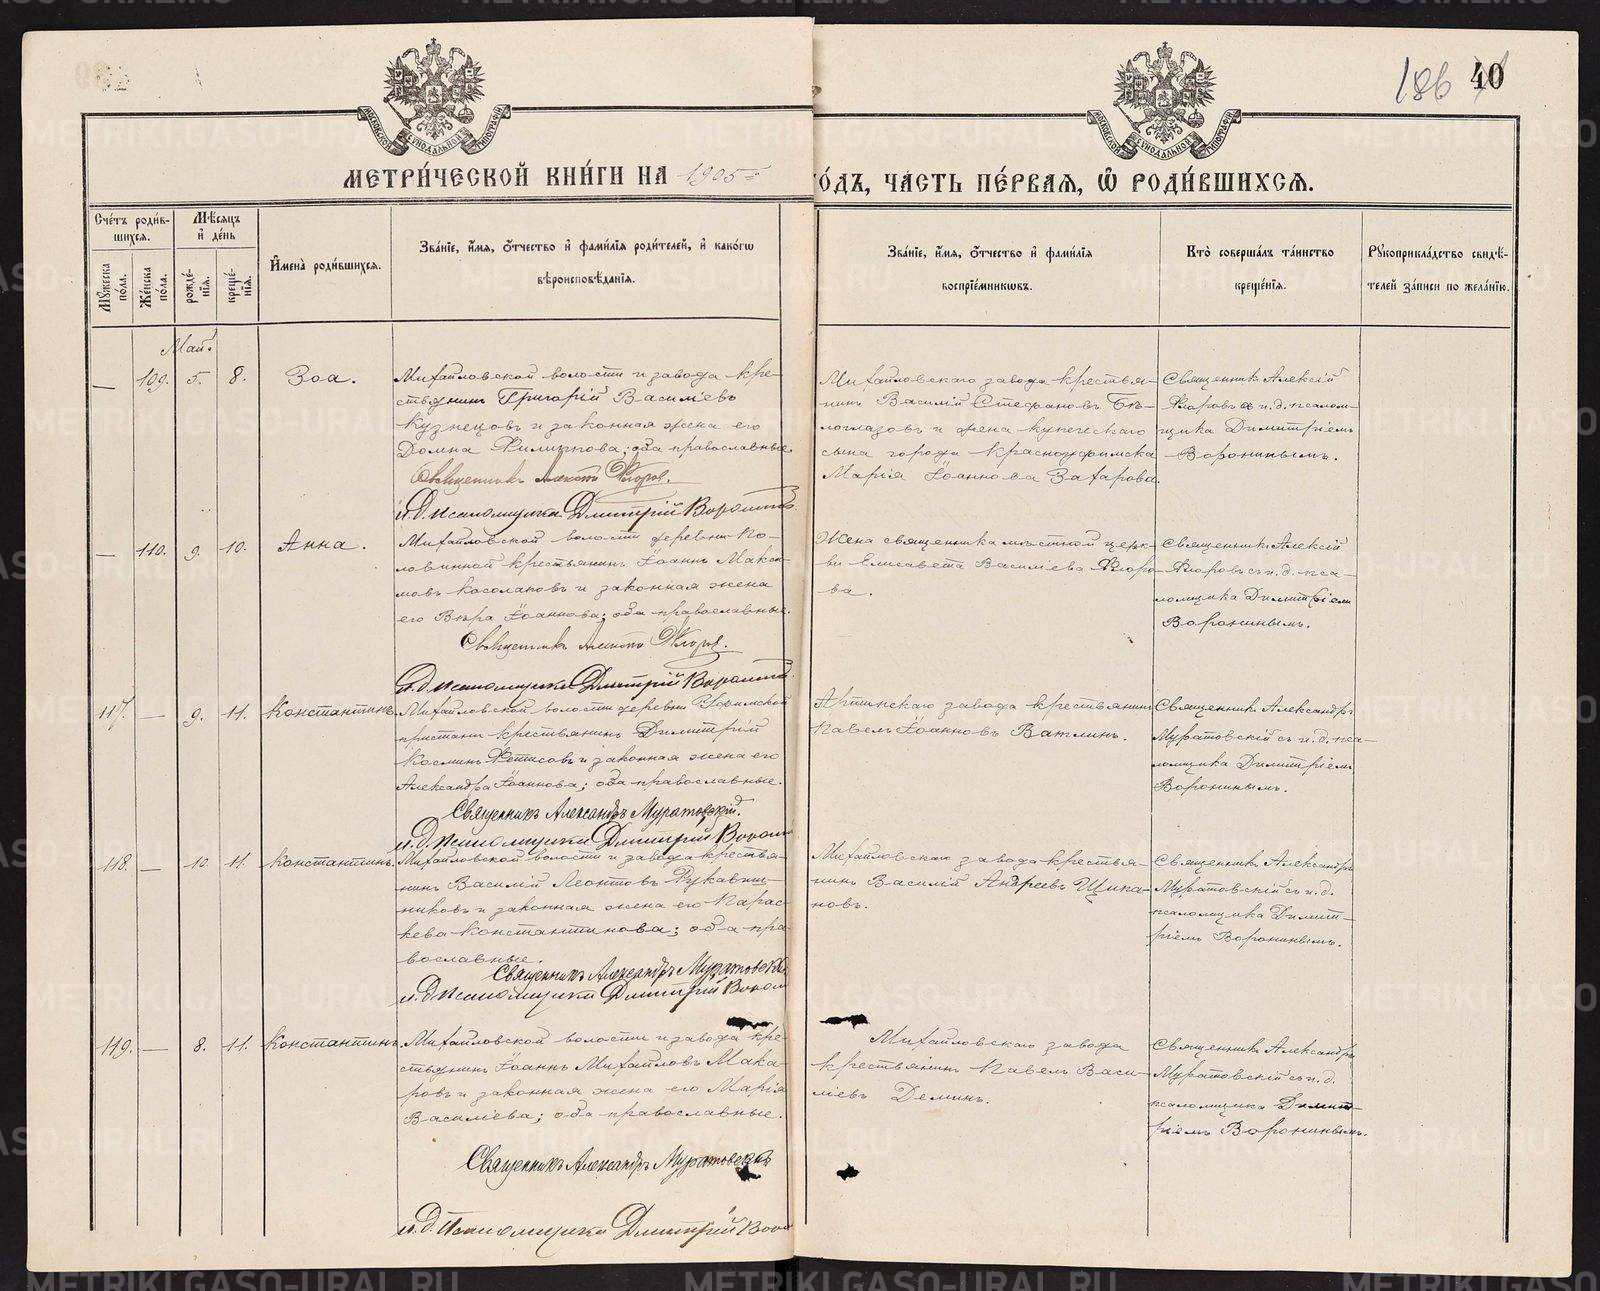 186 40
МОСКОВСКОЙ СѴНОДАЛЬНОЙ ТИПОГРАФІИ
МОСКОВСКОЙ СѴНОДАЛЬНОЙ ТИПОГРАФІИ
МЕТРИ́ЧЕСКОЙ КНИ́ГИ НА 1905 ГО́ДЪ, ЧА́СТЬ ПЕ́РВАЯ, Ѡ҆ РОДИ́ВШИХСЯ.
Сче́тъ роди́вшихся.
Мꙋ́жеска по́ла.
Же́нска по́ла.
Мѣ́сяцъ и҆ де́нь
рожде́нїя.
креще́нїя.
И҆мена̀ роди́вшихся.
Зва́нїе, и҆́мя, ѻ҆́тчество и҆ фами́лїя роди́телей, и҆ како́гѡ
вѣроисповѣ́данїя.
Зва́нїе, и҆́мя, ѻ҆́тчество и҆ фами́лїя
воспрїе́мникѡвъ.
Кто̀ соверша́лъ та́инство
креще́нїя.
Рꙋкоприкла́дство свидѣ́-
телей за́писи по жела́нїю.
Май.
— 109. 5. 8. Зоа.
Михайловской волости и завода кре-
стьянин Григорій Васильевъ
Кузнецовъ и законная жена его
Домна Филипова; оба православные.
Священникъ Алексій Флоровъ.
и. д. псаломщика Дмитрій Воронинъ
Михайловскаго завода крестья-
нинъ Василій Стефановъ Бѣ-
логлазовъ и жена купеческаго
сына города Красноуфимска
Марія Іоаннова Захарова.
Священникъ Алексій
Флоровъ съ и. д. псалом-
щика Димитріемъ
Воронинымъ.
— 110. 9. 10. Анна.
Михайловской волости деревни По-
ловинной крестьянинъ Іоаннъ Макси-
мовъ Косолаповъ и законная жена
его Вѣра Іоаннова; оба православные.
Священникъ Алексій Флоровъ.
и. д. псаломщика Дмитрій Воронинъ
Жена священника мѣстной церк-
ви Елисавета Васильева Флоро-
ва.
Священникъ Алексій
Флоровъ съ и. д. пса-
ломщика Димитріемъ
Воронинымъ.
117. — 9. 11. Константинъ.
Михайловской волости деревни Уфимской
пристани крестьянинъ Димитрій
Космин Фетисовъ и законная жена его
Александра Іоаннова; оба православные.
Священникъ Александръ Муратовскій.
и. д. псаломщика Дмитрій Ворони
Артинскаго завода крестьянинъ
Павелъ Іоанновъ Ватлинъ.
Священникъ Александръ
Муратовскій съ и. д. пса-
ломщика Димитріемъ
Воронинымъ.
118. — 10. 11. Константинъ.
Михайловской волости и завода крестья-
нинъ Василій Леонтовъ Рукавиш-
никовъ и законная жена его Парас-
кева Константинова; оба пра-
вославные.
Священникъ Александръ Муратовскій
и. д. псаломщика Дмитрій Ворон
Михайловскаго завода крестья-
нинъ Василій Андреевъ Щипа-
новъ.
Священникъ Александръ
Муратовскій съ и. д.
псаломщика Димит-
ріемъ Воронинымъ.
119. — 8. 11. Константинъ
Михайловской волости и завода кре-
стьянинъ Іоаннъ Михайловъ Мака-
ровъ и законная жена его Марія
Васильева; оба православные.
Священникъ Александръ Муратовскій
и. д. Псаломщика Дмитрій Воро
Михайловскаго завода
крестьянинъ Павелъ Васи-
льевъ Деминъ.
Священникъ Александръ
Муратовскій съ и. д.
псаломщика Димит-
ріемъ Воронинымъ.
METRIKI.GASO-URAL.RU